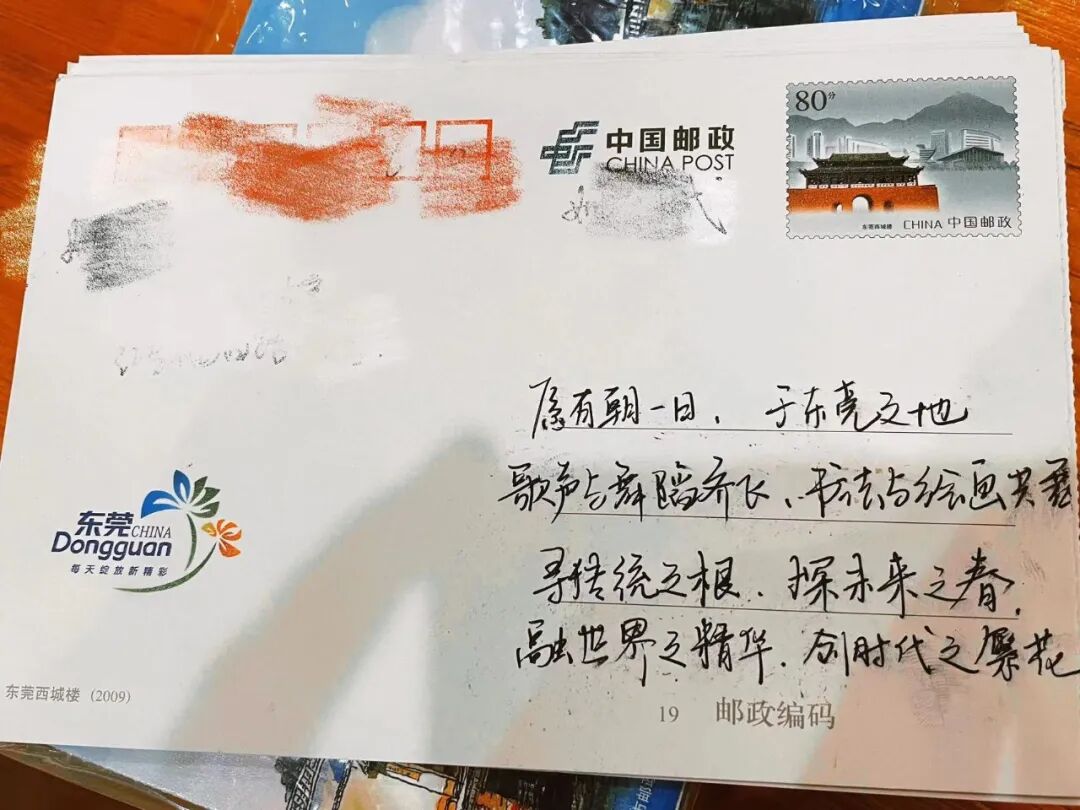 80分
中国邮政
CHINA POST
东莞西城楼 CHINA 中国邮政
愿有朝一日，于东莞之地
歌声与舞蹈齐飞、书法与绘画共
寻传统之根、探未来之春，
融世界之精华、创时代之繁花
东莞 CHINA
Dongguan
每天绽放新精彩
东莞西城楼 (2009)
19 邮政编码